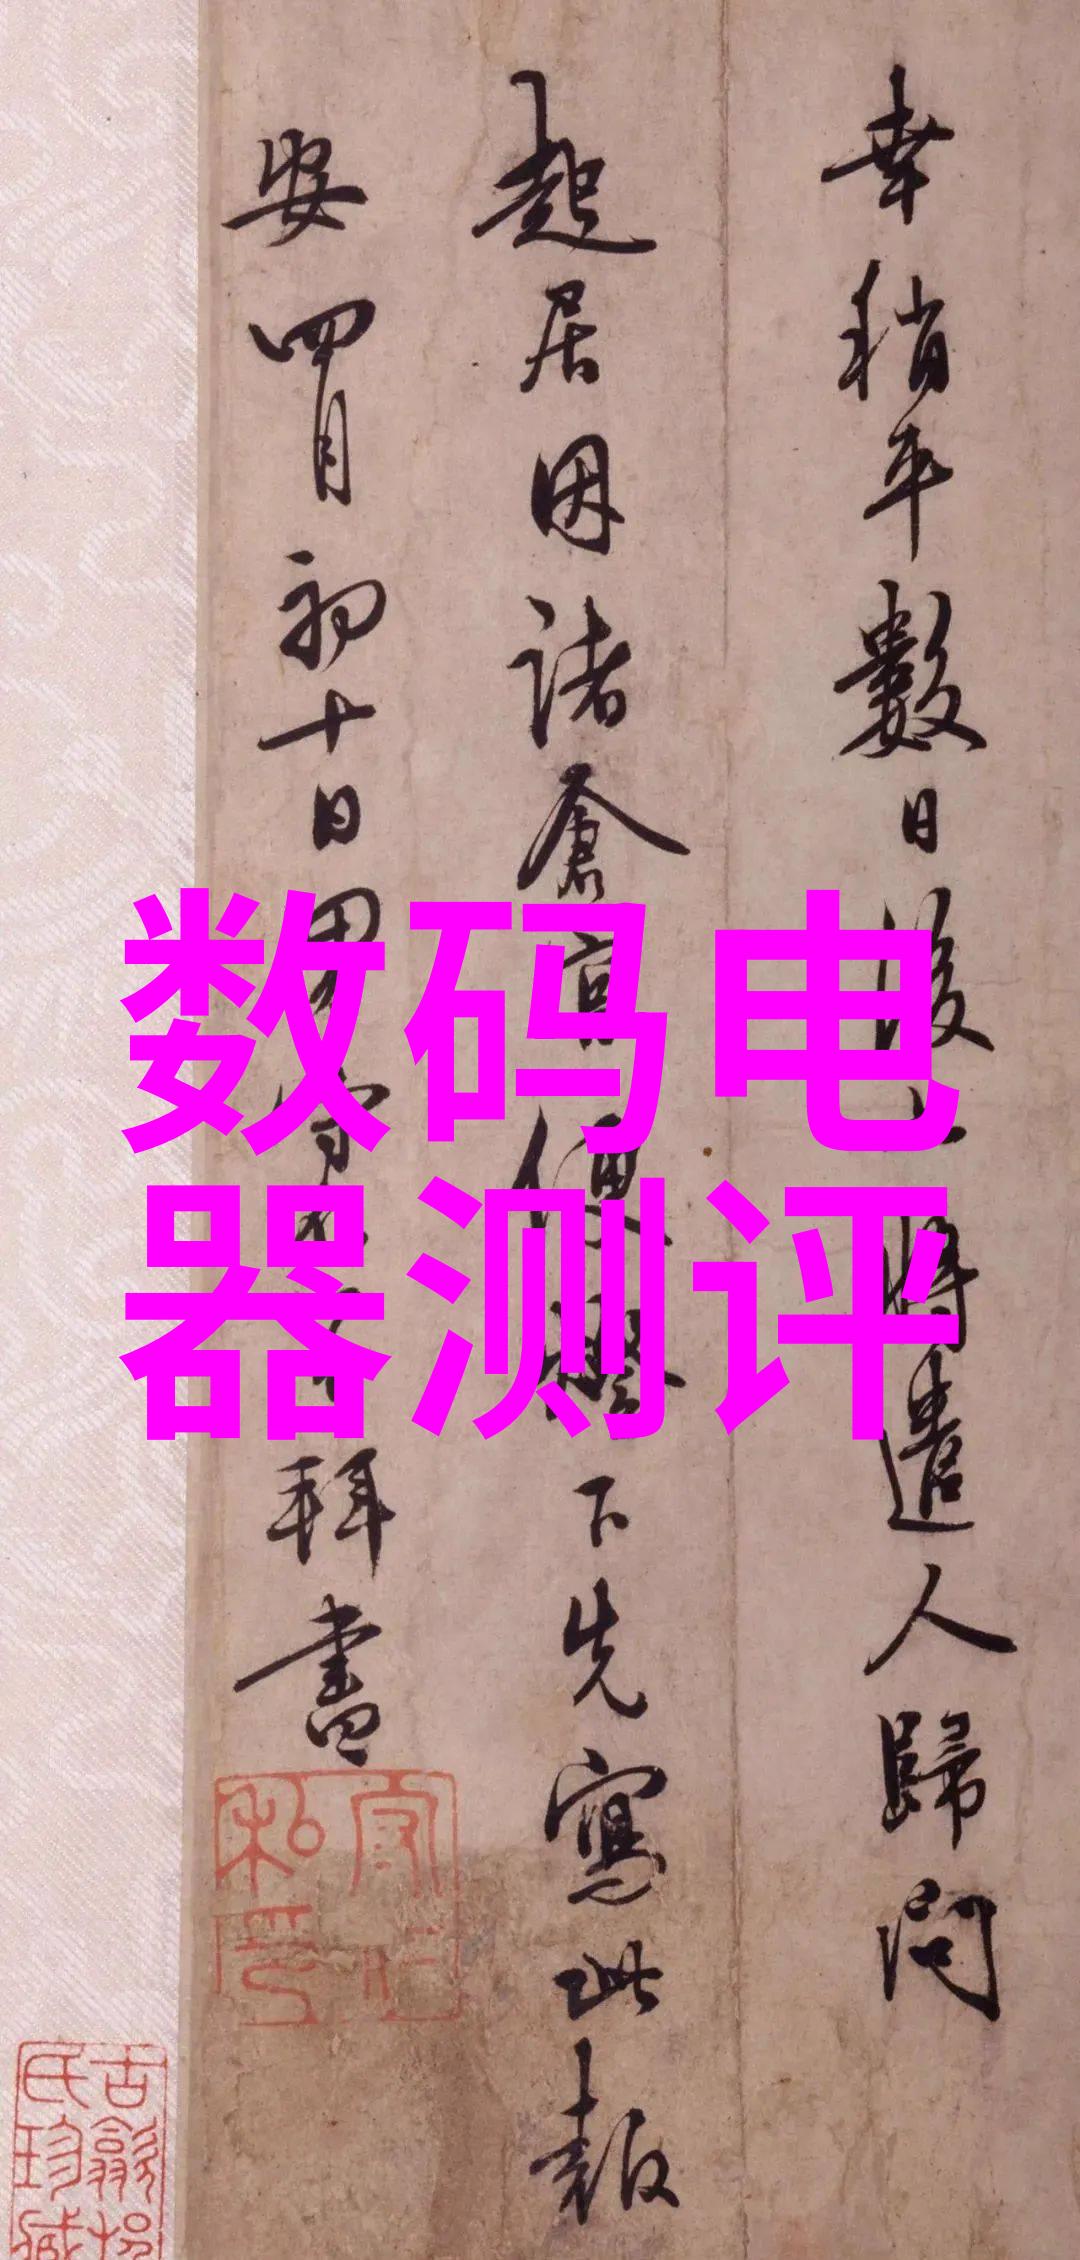 幸稍平數日後
將遣人歸問
起居因諸倉官便
下先寫此報
安四月初十日男
拜書
数码电
器测评
私印
古歙
氏珍藏